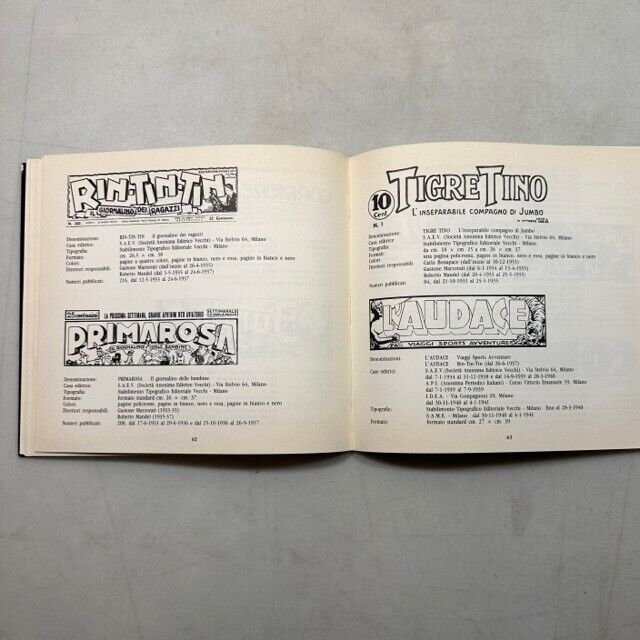 RIN-TIN-TIN
IL GIORNALINO DEI RAGAZZI
Denominazione: RIN-TIN-TIN Il giornalino dei ragazzi
Case editrice: S.A.E.V. (Società Anonima Editrice Vecchi) - Via Stelvio 64, Milano
Tipografia: Stabilimento Tipografico Editoriale Vecchi - Milano
Formato: cm. 26,5 × cm. 38
Colori: pagine a quattro colori, pagine in bianco, nero e rosa, pagine in bianco e nero
Direttori responsabili: Gustone Marzorati (dall'inizio al 26-4-1935)
Roberto Mandel (dal 3-5-1935 al 24-6-1937)
Numeri pubblicati 216, dal 12-5-1933 al 24-6-1937
25 centesimi LA PROSSIMA SETTIMANA, GRANDE
SETTIMANALE
PRIMAROSA
IL GIORNALINO DELLE BAMBINE
Denominazione: PRIMAROSA Il giornalino delle bambine
Case editrice: S.A.E.V. (Società Anonima Editrice Vecchi) - Via Stelvio 64, Milano
Tipografia: Stabilimento Tipografico Editoriale Vecchi - Milano
Formato: formato standard cm. 26 × cm. 37
Colori: pagine policrome, pagine in bianco, nero e rosa, pagine in bianco e nero
Direttori responsabili: Gustone Marzorati (1933-35)
Roberto Mandel (1935-37)
Numeri pubblicati 208, dal 17-6-1933 al 29-6-1936 e dal 25-10-1936 al 26-9-1937
62
10 Cent
TIGRE TINO
L'INSEPARABILE COMPAGNO DI JUMBO
N. 1
Denominazione: TIGRE TINO L'inseparabile compagno di Jumbo
Case editrice: S.A.E.V. (Società Anonima Editrice Vecchi) - Via Stelvio 64, Milano
Tipografia: Stabilimento Tipografico Editoriale Vecchi - Milano
Formato: da cm. 18 × cm. 25 a cm. 26 × cm. 37
Colori: una pagina policroma, pagine in bianco, nero e rosa, pagine in bianco e nero
Direttori responsabili: Carlo Bonapace (dall'inizio al 30-12-1933)
Gustone Marzorati (dal 6-1-1934 al 15-4-1935)
Roberto Mandel (dal 20-4-1935 al 25-5-1935)
Numeri pubblicati: 84, dal 21-10-1933 al 25-5-1935
L'AUDACE
VIAGGI SPORTS AVVENTURE
Denominazioni: L'AUDACE Viaggi Sports Avventure
L'AUDACE Rin-Tin-Tin (dal 26-6-1937)
Case editrici: S.A.E.V. (Società Anonima Editrice Vecchi) - Via Stelvio 64, Milano
dal 7-1-1934 al 31-12-1938 e dal 14-9-1939 al 28-4-1940
A.P.I. (Anonima Periodici Italiani) - Corso Vittorio Emanuele 33, Milano
dal 7-1-1939 al 7-9-1939
I.D.E.A. - Via Compagnoni 20, Milano
dal 30-11-1940 al 4-1-1941
Tipografie: Stabilimento Tipografico Editoriale Vecchi - Milano fino al 28-5-1940
S.A.M.E. - Milano dal 30-11-1940 al 4-1-1941
Formato: formato standard cm. 27 × cm. 39
63